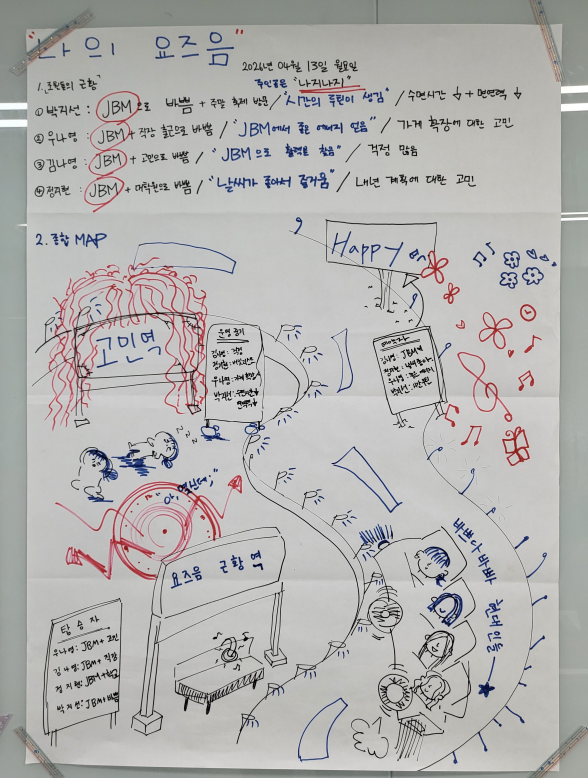 "나의 요즈음"
2026년 04월 13일 월요일
주인공은 "나지나지"
1. 조원들의 근황
① 박지선 : JBM으로 바쁨 + 주말 축제 방문 / "시간의 루틴이 생김" / 수면시간 ↓ + 면역력 ↓
② 우나영 : JBM + 직장 출근으로 바쁨 / "JBM에서 좋은 에너지 얻음" / 가게 확장에 대한 고민
③ 김나영 : JBM + 고민으로 바쁨 / "JBM으로 활력을 찾음" / 걱정 많음
④ 정지현 : JBM + 대학원으로 바쁨 / "날씨가 좋아서 즐거움" / 내년 계획에 대한 고민
2. 종합 MAP
Happy
고민역
운영 중지
김나영 : 걱정
우나영 :
박지선 : 수면시간↓
면역력↓
김나영 : JBM
정지현 :
우나영 :
박지선 :
z z z
"아, 역산데;"
요즈음 근황역
탑승자
우나영 : JBM + 고민
김나영 : JBM + 직장
정지현 : JBM + 학교
박지선 : JBM + 바쁨
바쁘다 바빠
현대인들